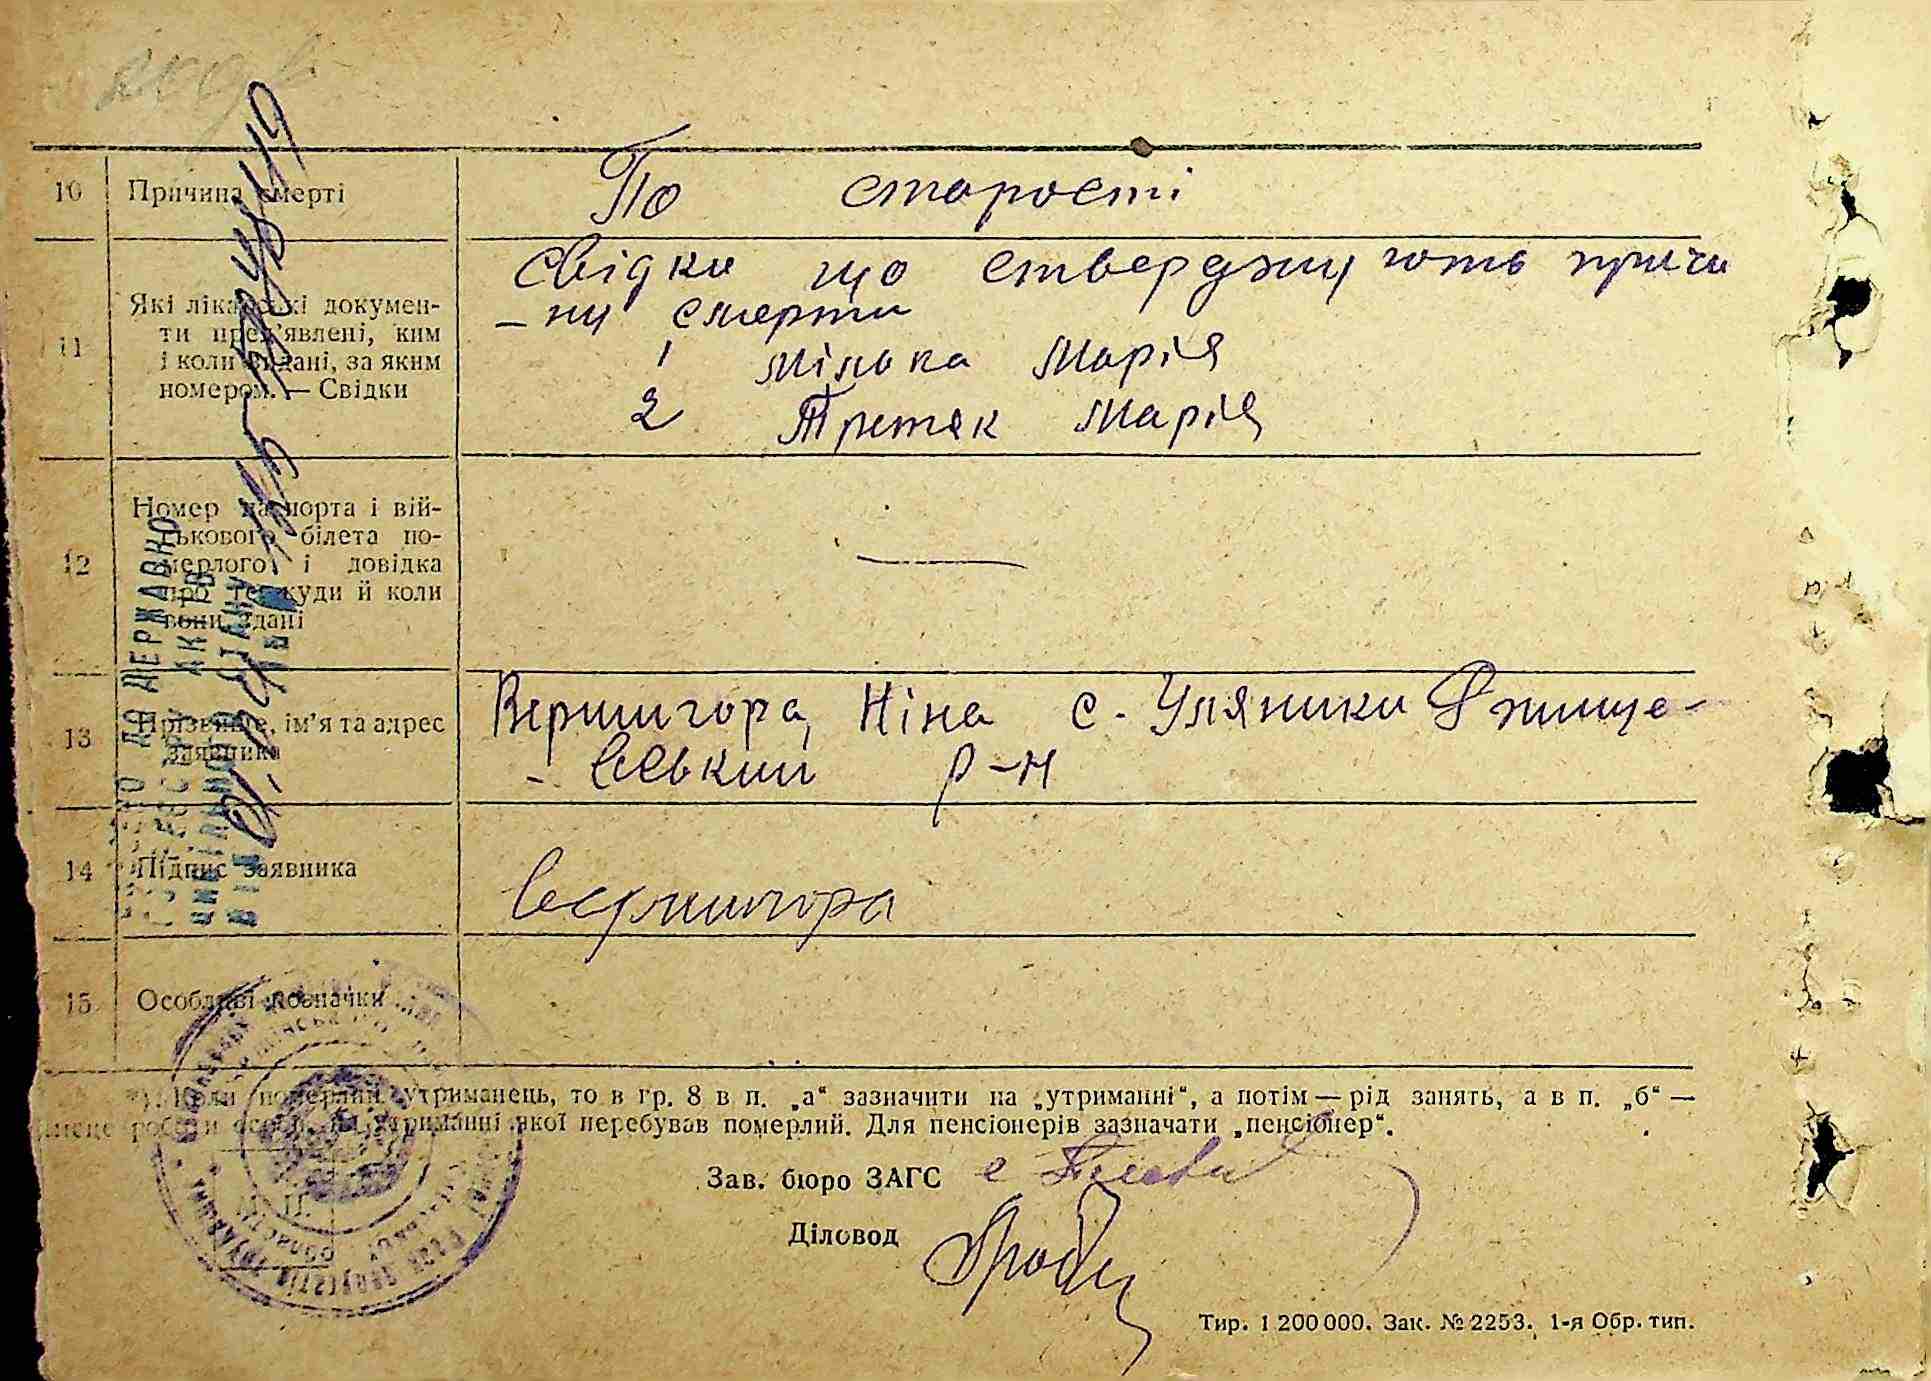 10 Причина смерті По старості
11 Які лікарські документи пред'явлені, ким і коли видані, за яким номером. — Свідки
Свідки що стверджують причи
-ну смерти
1 Мілька Марія
2 Третяк Марія
12 Номер паспорта і вій-
ськового білета по-
мерлого і довідка
про те, куди й коли
вони здані —
13 Прізвище, ім'я та адрес
заявника
Вершигора Ніна с. Уляники Ржище-
- вський р-н
14 Підпис заявника Вершигора
15 Особливі позначки
*) Коли померлий утриманець, то в гр. 8 в п. „а“ зазначити на „утриманні“, а потім — рід занять, а в п. „б“ —
місце роботи особи, на утриманні якої перебував померлий. Для пенсіонерів зазначати „пенсіонер“.
Зав. бюро ЗАГС
Діловод
М. П.
Тир. 1 200 000. Зак. № 2253. 1-я Обр. тип.